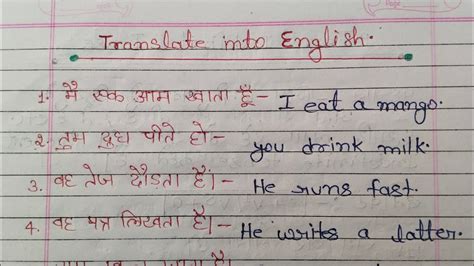 Translate into English.
1. मैं एक आम खाता हूँ - I eat a mango.
2. तुम दुध पीते हो - you drink milk.
3. वह तेज दौड़ता है। - He runs fast.
4. वह पत्र लिखता है। - He writes a latter.